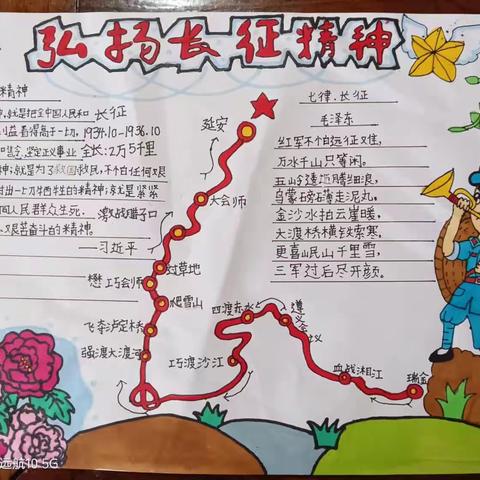 弘扬长征精神
精神
就是把全中国人民和
利益看得高于一切,
坚定正义事业
精神;就是为了救国救民,不怕任何艰
付出一切牺牲的精神;就是紧紧
同人民群众生死
艰苦奋斗的精神
——习近平
长征
1934.10-1936.10
全长:2万5千里
七律.长征
毛泽东
红军不怕远征难,
万水千山只等闲。
五岭逶迤腾细浪,
乌蒙磅礴走泥丸。
金沙水拍云崖暖,
大渡桥横铁索寒。
更喜岷山千里雪,
三军过后尽开颜。
延安
大会师
激战腊子口
过草地
懋巧会师
爬雪山
飞夺泸定桥
强渡大渡河
巧渡沙江
四渡赤水
遵义会议
血战湘江
瑞金
远航10 5G